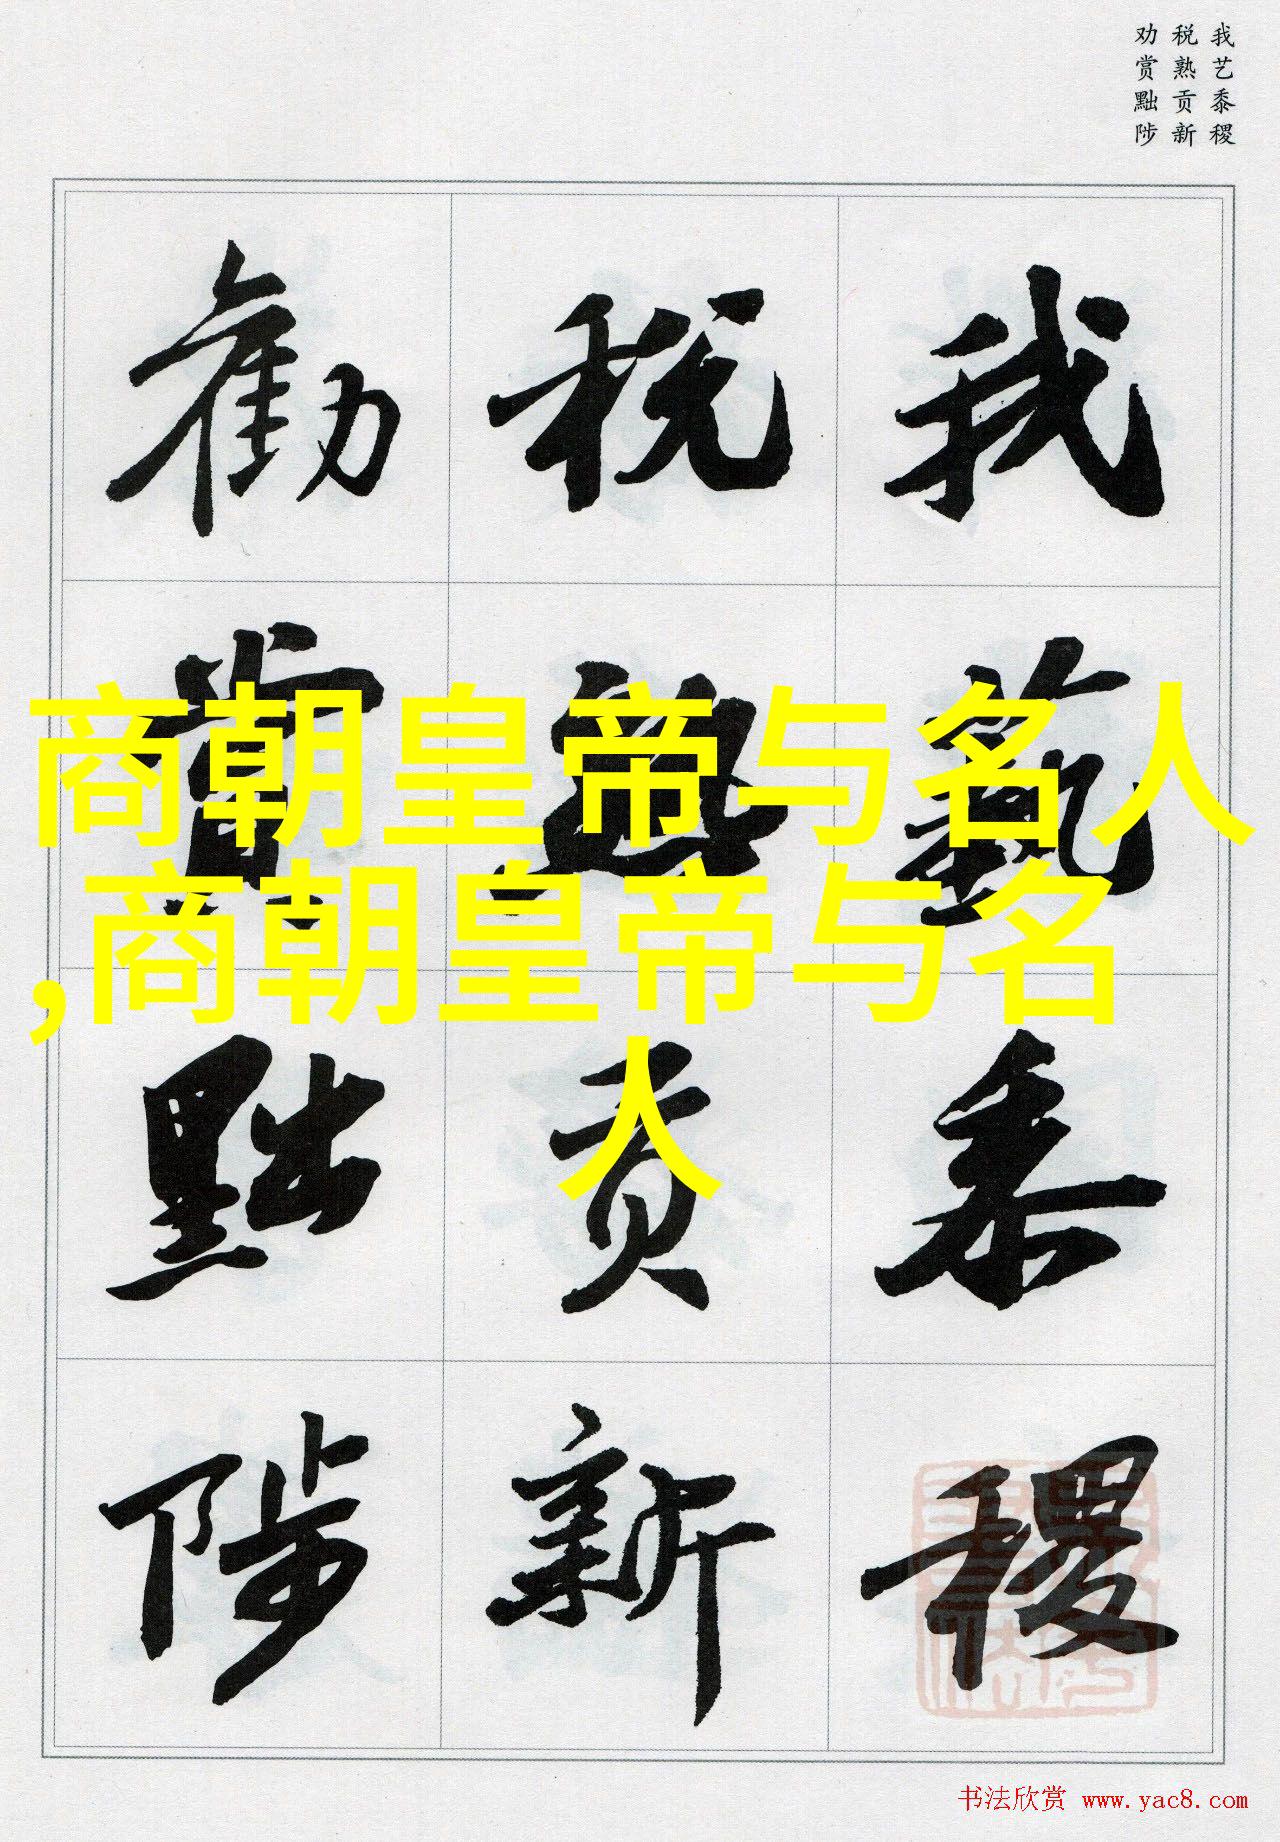 我艺黍稷
税熟贡新
劝赏黜陟
我藝黍稷
税熟贡新
勸赏黜陟
商朝皇帝与名人
,商朝皇帝与名
人
书法欣赏 www.yac8.com